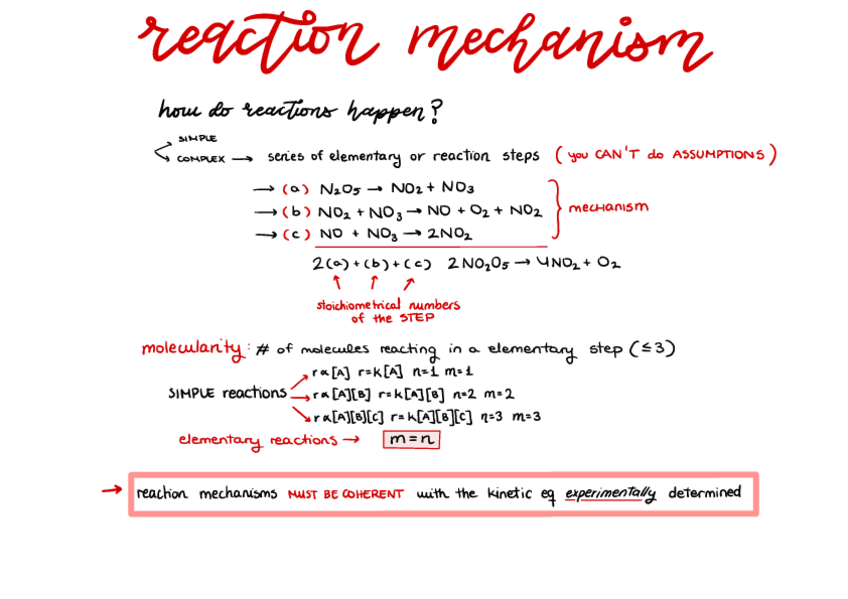 reaction mechanism
how do reactions happen?
SIMPLE
COMPLEX → series of elementary or reaction steps (you CAN'T do ASSUMPTIONS)
→ (a) N₂O₅ → NO₂ + NO₃
→ (b) NO₂ + NO₃ → NO + O₂ + NO₂
→ (c) NO + NO₃ → 2NO₂
mechanism
2(a)+(b)+(c) 2NO₂O₅ → 4NO₂ + O₂
stoichiometrical numbers
of the STEP
molecularity: # of molecules reacting in a elementary step (≤3)
r α [A] r=k[A] n=1 m=1
SIMPLE reactions → r α [A][B] r=k[A][B] n=2 m=2
r α [A][B][C] r=k[A][B][C] n=3 m=3
elementary reactions → m=n
→ reaction mechanisms MUST BE COHERENT with the kinetic eq experimentally determined